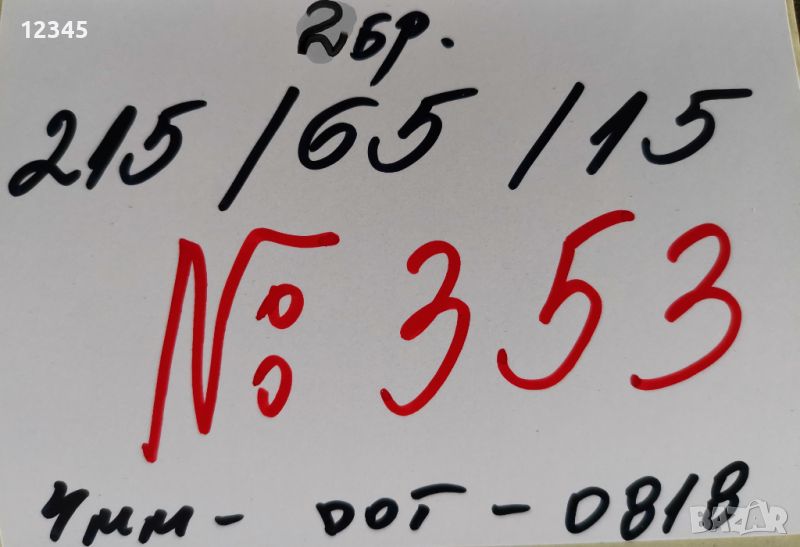 12345
2бр.
215/65/15
№: 353
4мм - DOT - 0818
BAZAR